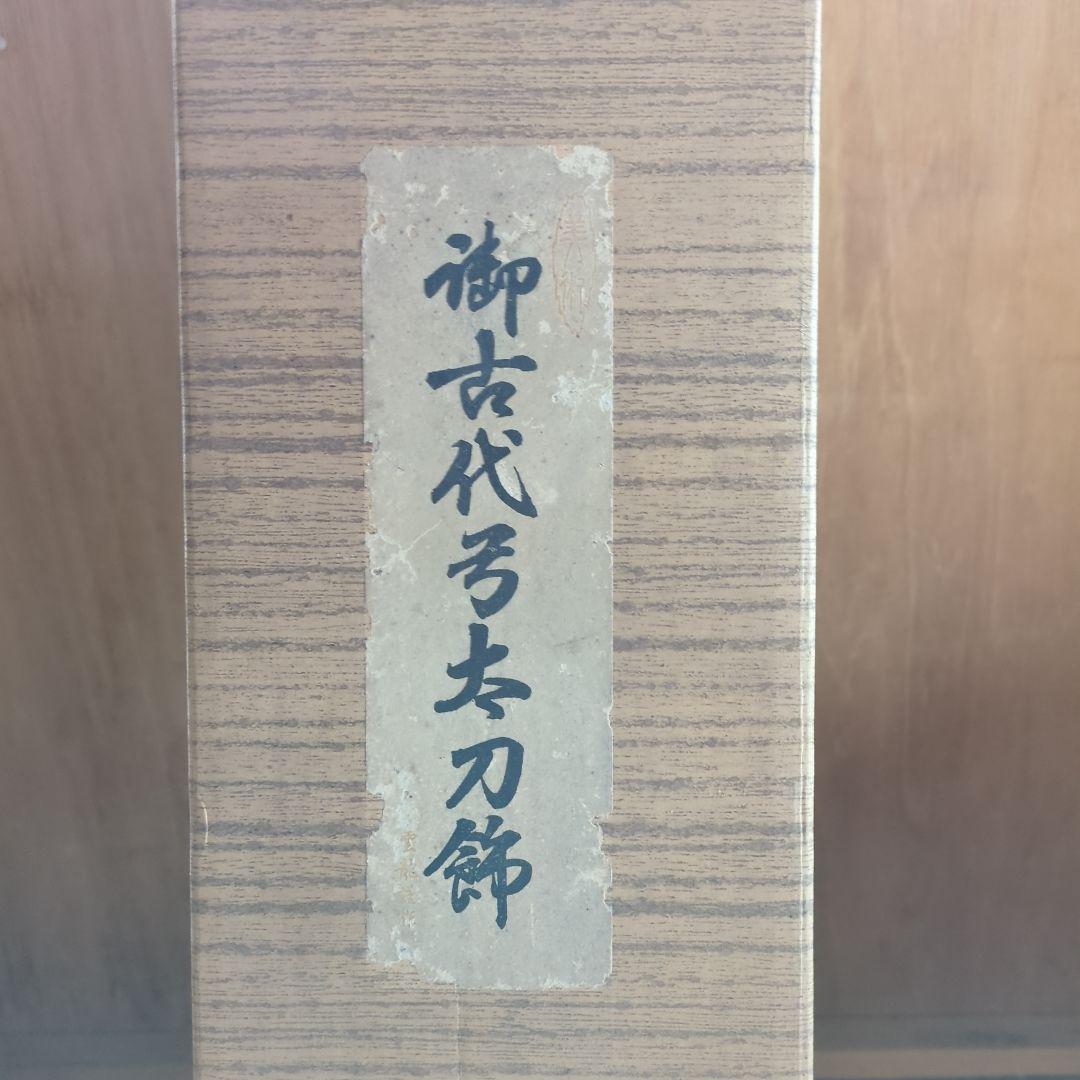 御古代弓太刀飾